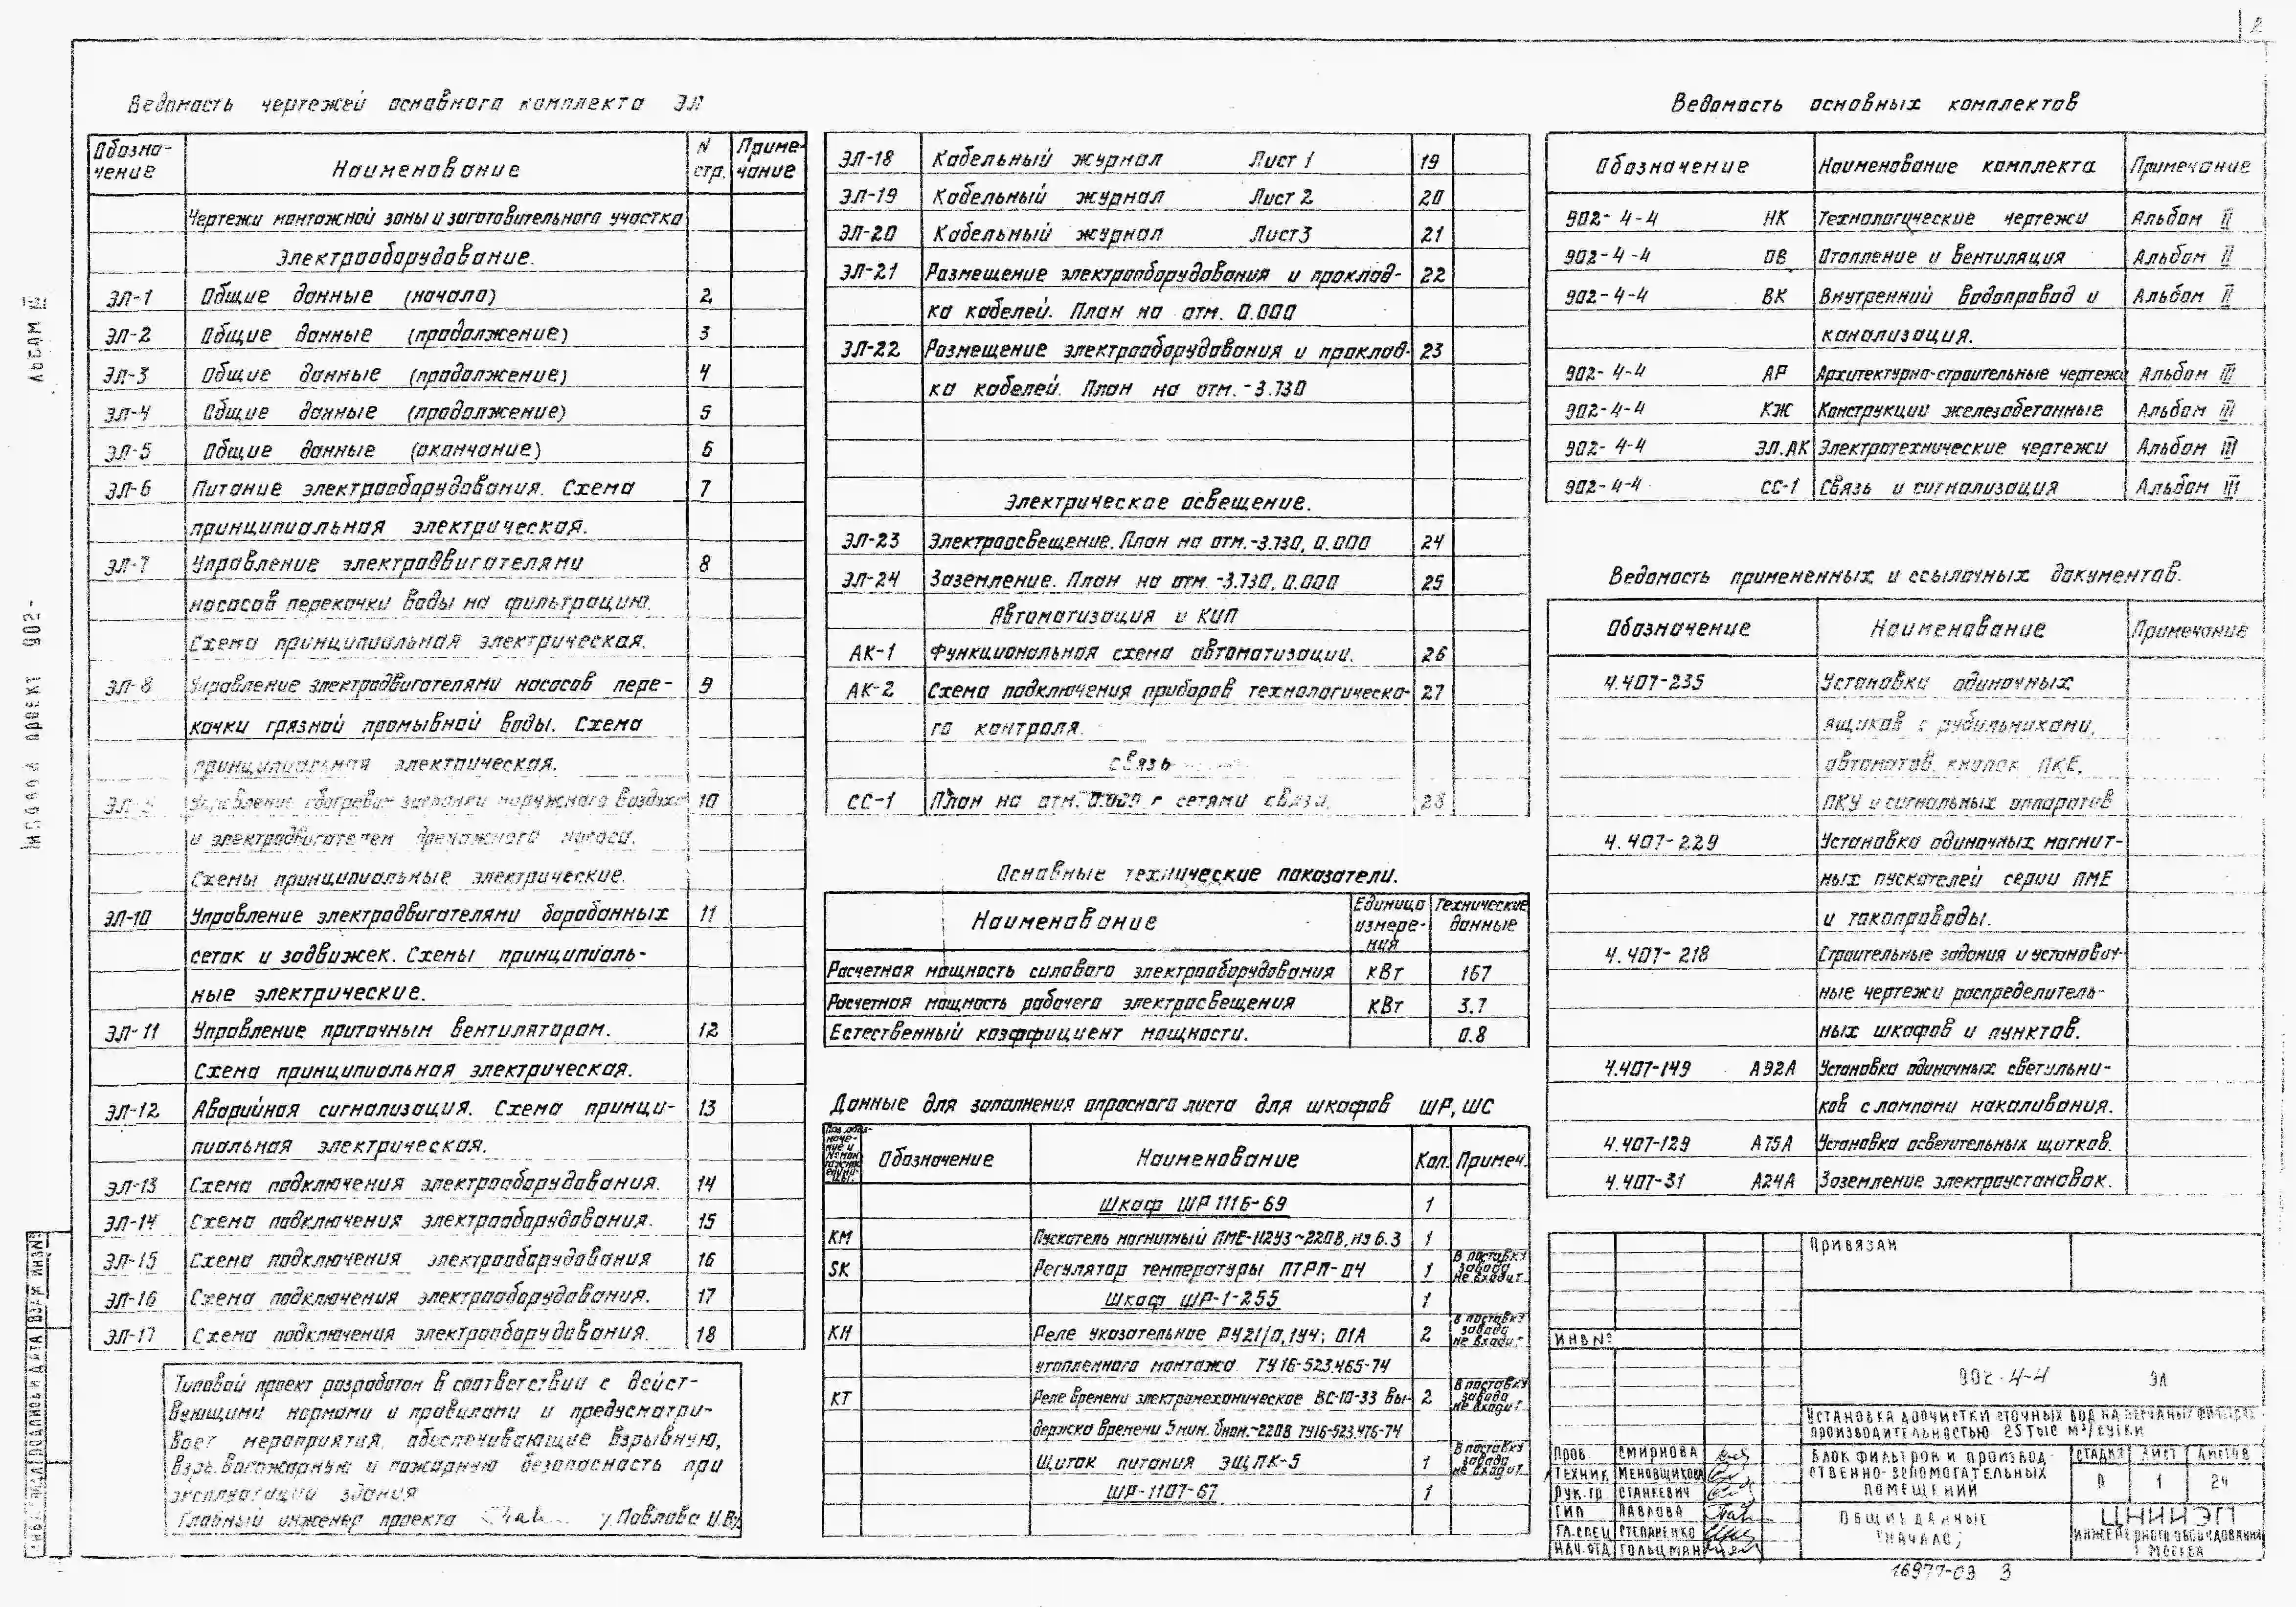 2
Ведомость чертежей основного комплекта ЭЛ
Обозна-
чение
Наименование
N
стр.
Приме-
чание
Чертежи монтажной зоны и заготовительного участка
Электрооборудование.
ЭЛ-1 Общие данные (начало) 2
ЭЛ-2 Общие данные (продолжение) 3
ЭЛ-3 Общие данные (продолжение) 4
ЭЛ-4 Общие данные (продолжение) 5
ЭЛ-5 Общие данные (окончание) 6
ЭЛ-6 Питание электрооборудования. Схема 7
принципиальная электрическая.
ЭЛ-7 Управление электродвигателями 8
насосов перекачки воды на фильтрацию.
Схема принципиальная электрическая.
ЭЛ-8 Управление электродвигателями насосов пере- 9
качки грязной промывной воды. Схема
принципиальная электрическая.
Управление обогревом заслонки наружного воздуха 10
и электродвигателем дренажного насоса.
Схемы принципиальные электрические.
ЭЛ-10 Управление электродвигателями барабанных 11
сеток и задвижек. Схемы принципиаль-
ные электрические.
ЭЛ-11 Управление приточным вентилятором. 12
Схема принципиальная электрическая.
ЭЛ-12 Аварийная сигнализация. Схема принци- 13
пиальная электрическая.
ЭЛ-13 Схема подключения электрооборудования. 14
ЭЛ-14 Схема подключения электрооборудования. 15
ЭЛ-15 Схема подключения электрооборудования 16
ЭЛ-16 Схема подключения электрооборудования. 17
ЭЛ-17 Схема подключения электрооборудования. 18
Типовой проект разработан в соответствии с дейст-
вующими нормами и правилами и предусматри-
вает мероприятия, обеспечивающие взрывную,
взрывопожарную и пожарную безопасность при
эксплуатации здания
Главный инженер проекта /Павлова
ЭЛ-18 Кабельный журнал Лист 1 19
ЭЛ-19 Кабельный журнал Лист 2 20
ЭЛ-20 Кабельный журнал Лист3 21
ЭЛ-21 Размещение электрооборудования и проклад- 22
ка кабелей. План на отм. 0.000
ЭЛ-22 Размещение электрооборудования и проклад- 23
ка кабелей. План на отм. -3.730
Электрическое освещение.
ЭЛ-23 Электроосвещение. План на отм.-3.730, 0.000 24
ЭЛ-24 Заземление. План на отм. -3.730, 0.000 25
Автоматизация и КИП
АК-1 Функциональная схема автоматизации. 26
АК-2 Схема подключения приборов технологическо- 27
го контроля.
Связь
СС-1 План на отм. 0.000 с сетями связи. 28
Основные технические показатели.
Наименование
Единица
измере-
ния
Технические
данные
Расчетная мощность силового электрооборудования кВт 167
Расчетная мощность рабочего электроосвещения кВт 3.7
Естественный коэффициент мощности. 0.8
Данные для заполнения опросного листа для шкафов ШР, ШС
Обозначение Наименование Кол. Примеч.
Шкаф ШР 1116-69 1
КМ Пускатель магнитный ПМЕ-112У3~220В, нэ 6.3 1
SK Регулятор температуры ПТРП-04 1 В поставку завода не входит
Шкаф ШР-1-255 1
КН Реле указательное РУ21/0,1У4; 01А 2 В поставку завода не входит
утопленного монтажа. ТУ16-523.465-74
КТ Реле времени электромеханическое ВС-10-33 Вы- 2 В поставку завода не входит
держка времени 5мин. Uном.~220В ТУ16-523.476-74
Щиток питания ЭЩПК-5 1 В поставку завода не входит
ШР-1107-67 1
Ведомость основных комплектов
Обозначение Наименование комплекта Примечание
902-4-4 НК Технологические чертежи Альбом II
902-4-4 ОВ Отопление и вентиляция Альбом II
902-4-4 ВК Внутренний водопровод и Альбом II
канализация.
902-4-4 АР Архитектурно-строительные чертежи Альбом III
902-4-4 КЖ Конструкции железобетонные Альбом III
902-4-4 ЭЛ.АК Электротехнические чертежи Альбом III
902-4-4 СС-1 Связь и сигнализация Альбом III
Ведомость примененных и ссылочных документов.
Обозначение Наименование Примечание
4.407-235 Установка одиночных
ящиков с рубильниками,
автоматов, кнопок ПКЕ,
ПКУ и сигнальных аппаратов
4.407-229 Установка одиночных магнит-
ных пускателей серии ПМЕ
и токопроводы.
4.407-218 Строительные задания и установоч-
ные чертежи распределитель-
ных шкафов и пунктов.
4.407-149 А92А Установка одиночных светильни-
ков с лампами накаливания.
4.407-129 А75А Установка осветительных щитков.
4.407-31 А24А Заземление электроустановок.
Привязан
ИНВ №
902-4-4 ЭЛ
УСТАНОВКА ДООЧИСТКИ СТОЧНЫХ ВОД НА ПЕСЧАНЫХ ФИЛЬТРАХ
ПРОИЗВОДИТЕЛЬНОСТЬЮ 25 ТЫС М³/СУТКИ
ПРОВ. СМИРНОВА
ТЕХНИК МЕНОВЩИКОВА
РУК.ГР СТАНКЕВИЧ
ГИП ПАВЛОВА
ГЛ.СПЕЦ СТЕПАНЕНКО
НАЧ.ОТД ГОЛЬЦМАН
БЛОК ФИЛЬТРОВ И ПРОИЗВОД-
СТВЕННО-ВСПОМОГАТЕЛЬНЫХ
ПОМЕЩЕНИЙ
СТАДИЯ ЛИСТ ЛИСТОВ
Р 1 24
ОБЩИЕ ДАННЫЕ
(НАЧАЛО)
ЦНИИЭП
ИНЖЕНЕРНОГО ОБОРУДОВАНИЯ
Г МОСКВА
16977-03 3
АЛЬБОМ III
ТИПОВОЙ ПРОЕКТ 902-
ПОДПИСЬ И ДАТА
ВЗАМ ИНВ№